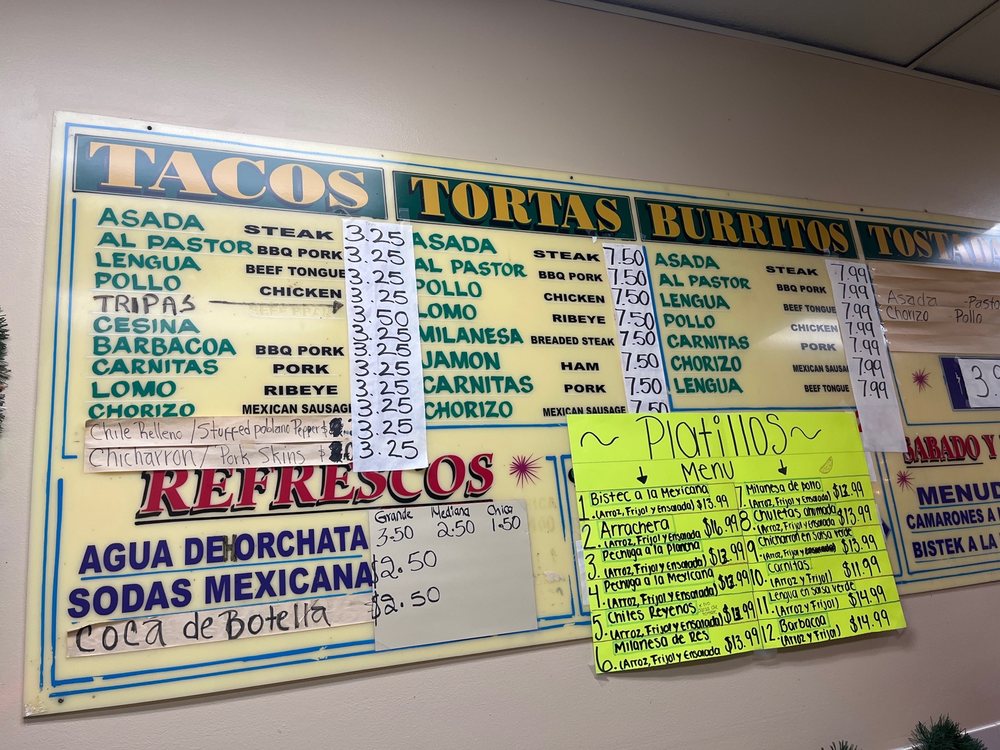 TACOS
ASADA STEAK 3.25
AL PASTOR BBQ PORK 3.25
LENGUA BEEF TONGUE 3.25
POLLO CHICKEN 3.25
TRIPAS 3.50
CESINA 3.25
BARBACOA BBQ PORK 3.25
CARNITAS PORK 3.25
LOMO RIBEYE 3.25
CHORIZO MEXICAN SAUSAGE 3.25
Chile Relleno / Stuffed poblano Pepper $
Chicharron / Pork Skins $ 3.25
TORTAS
ASADA STEAK 7.50
AL PASTOR BBQ PORK 7.50
POLLO CHICKEN 7.50
LOMO RIBEYE 7.50
MILANESA BREADED STEAK 7.50
JAMON HAM 7.50
CARNITAS PORK 7.50
CHORIZO MEXICAN SAUSAGE 7.50
BURRITOS
ASADA STEAK 7.99
AL PASTOR BBQ PORK 7.99
LENGUA BEEF TONGUE 7.99
POLLO CHICKEN 7.99
CARNITAS PORK 7.99
CHORIZO MEXICAN SAUSAG 7.99
LENGUA BEEF TONGUE 7.99
TOSTADA
Asada -Pasto
Chorizo Pollo
3.9
REFRESCOS
Grande Mediana Chica
3.50 2.50 1.50
AGUA DE HORCHATA
SODAS MEXICANA $2.50
Coca de Botella $2.50
~ Platillos ~
Menu
1. Bistec a la Mexicana
(Arroz, Frijol y Ensalada) $13.99
2. Arrachera
(Arroz, Frijol y Ensalada) $16.99
3. Pechuga a la plancha
(Arroz, Frijol y Ensalada) $12.99
4. Pechuga a la Mexicana
(Arroz, Frijol y Ensalada) $12.99
5. Chiles Reyenos
(Arroz, Frijol y Ensalada)
6. Milanesa de Res
(Arroz, Frijol y Ensalada) $13.99
7. Milanesa de pollo
(Arroz, Frijol y Ensalada) $12.99
8. Chuletas ahumada
(Arroz, Frijol y Ensalada) $13.99
9. Chicharron en salsa verde
(Arroz, Frijol y Ensalada) $13.99
10. Carnitas
(Arroz y Frijol) $11.99
11. Lengua en salsa verde
(Arroz y Frijol) $14.99
12. Barbacoa
(Arroz y Frijol) $14.99
SABADO Y
MENUD
CAMARONES A
BISTEK A LA